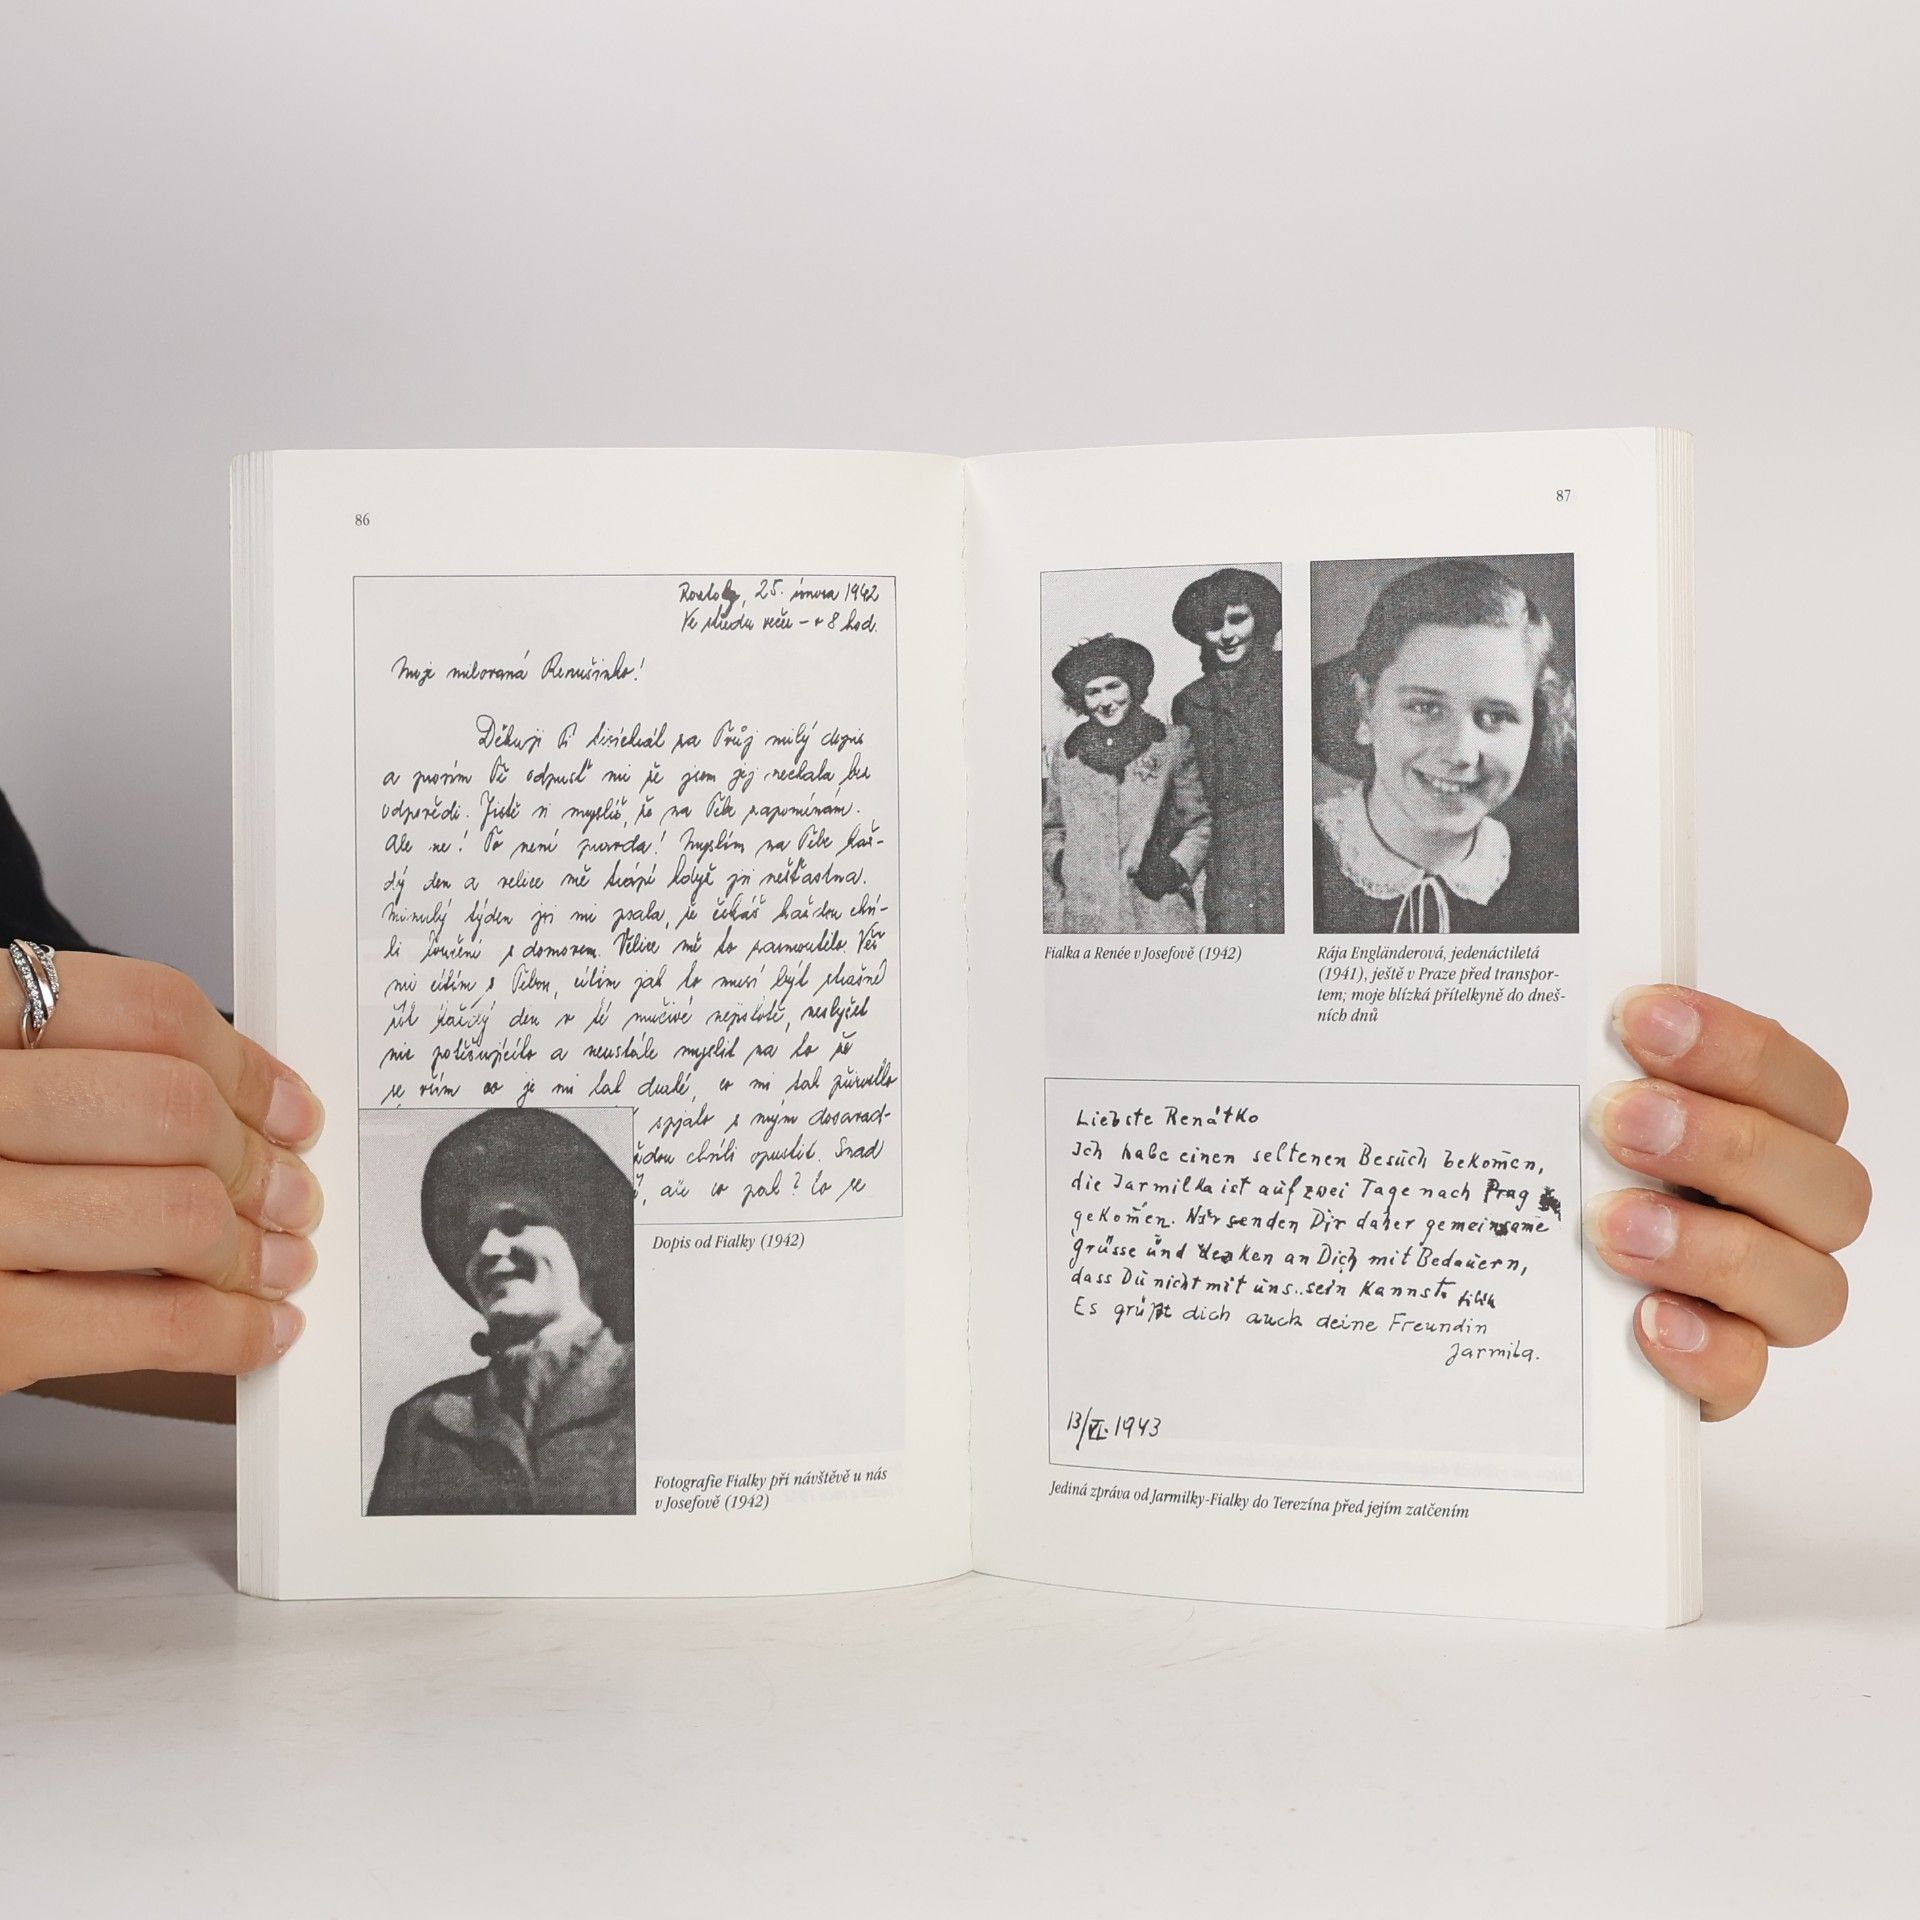 86
Roztoky, 25. února 1942
Ve středu večer – v 8 hod.
Moje milovaná Renušinko!
Děkuji Ti tisíckrát za Tvůj milý dopis
a prosím Tě odpusť mi že jsem jej nechala bez
odpovědi. Jistě si myslíš, že na Tebe zapomínám.
Ale ne! To není pravda! Myslím na Tebe kaž-
dý den a velice mě trápí když jsi nešťastna.
Minulý týden jsi mi psala, že čekáš každou chví-
li loučení s domovem. Velice mě to zarmoutilo. Věř
mi cítím s Tebou, cítím jak to musí být strašné
žít každý den v té mučivé nejistotě, neslyšet
nic potěšujícího a neustále myslit na to že
se vším co je mi tak drahé, co mi tak přirostlo
spjato s mým dosavad-
chvíli opustit. Snad
, ale co pak? Co se
Dopis od Fialky (1942)
Fotografie Fialky při návštěvě u nás
v Josefově (1942)
87
Fialka a Renée v Josefově (1942)
Rája Engländerová, jedenáctiletá
(1941), ještě v Praze před transpor-
tem; moje blízká přítelkyně do dneš-
ních dnů
Liebste Renátko
Ich habe einen seltenen Besuch bekom̄en,
die Jarmilka ist auf zwei Tage nach Prag
gekom̄en. Wir senden Dir daher gemeinsame
Grüsse und denken an Dich mit Bedauern,
dass Du nicht mit uns sein kannst.
Es grüßt dich auch deine Freundin
Jarmila.
13/VI. 1943
Jediná zpráva od Jarmilky-Fialky do Terezína před jejím zatčením